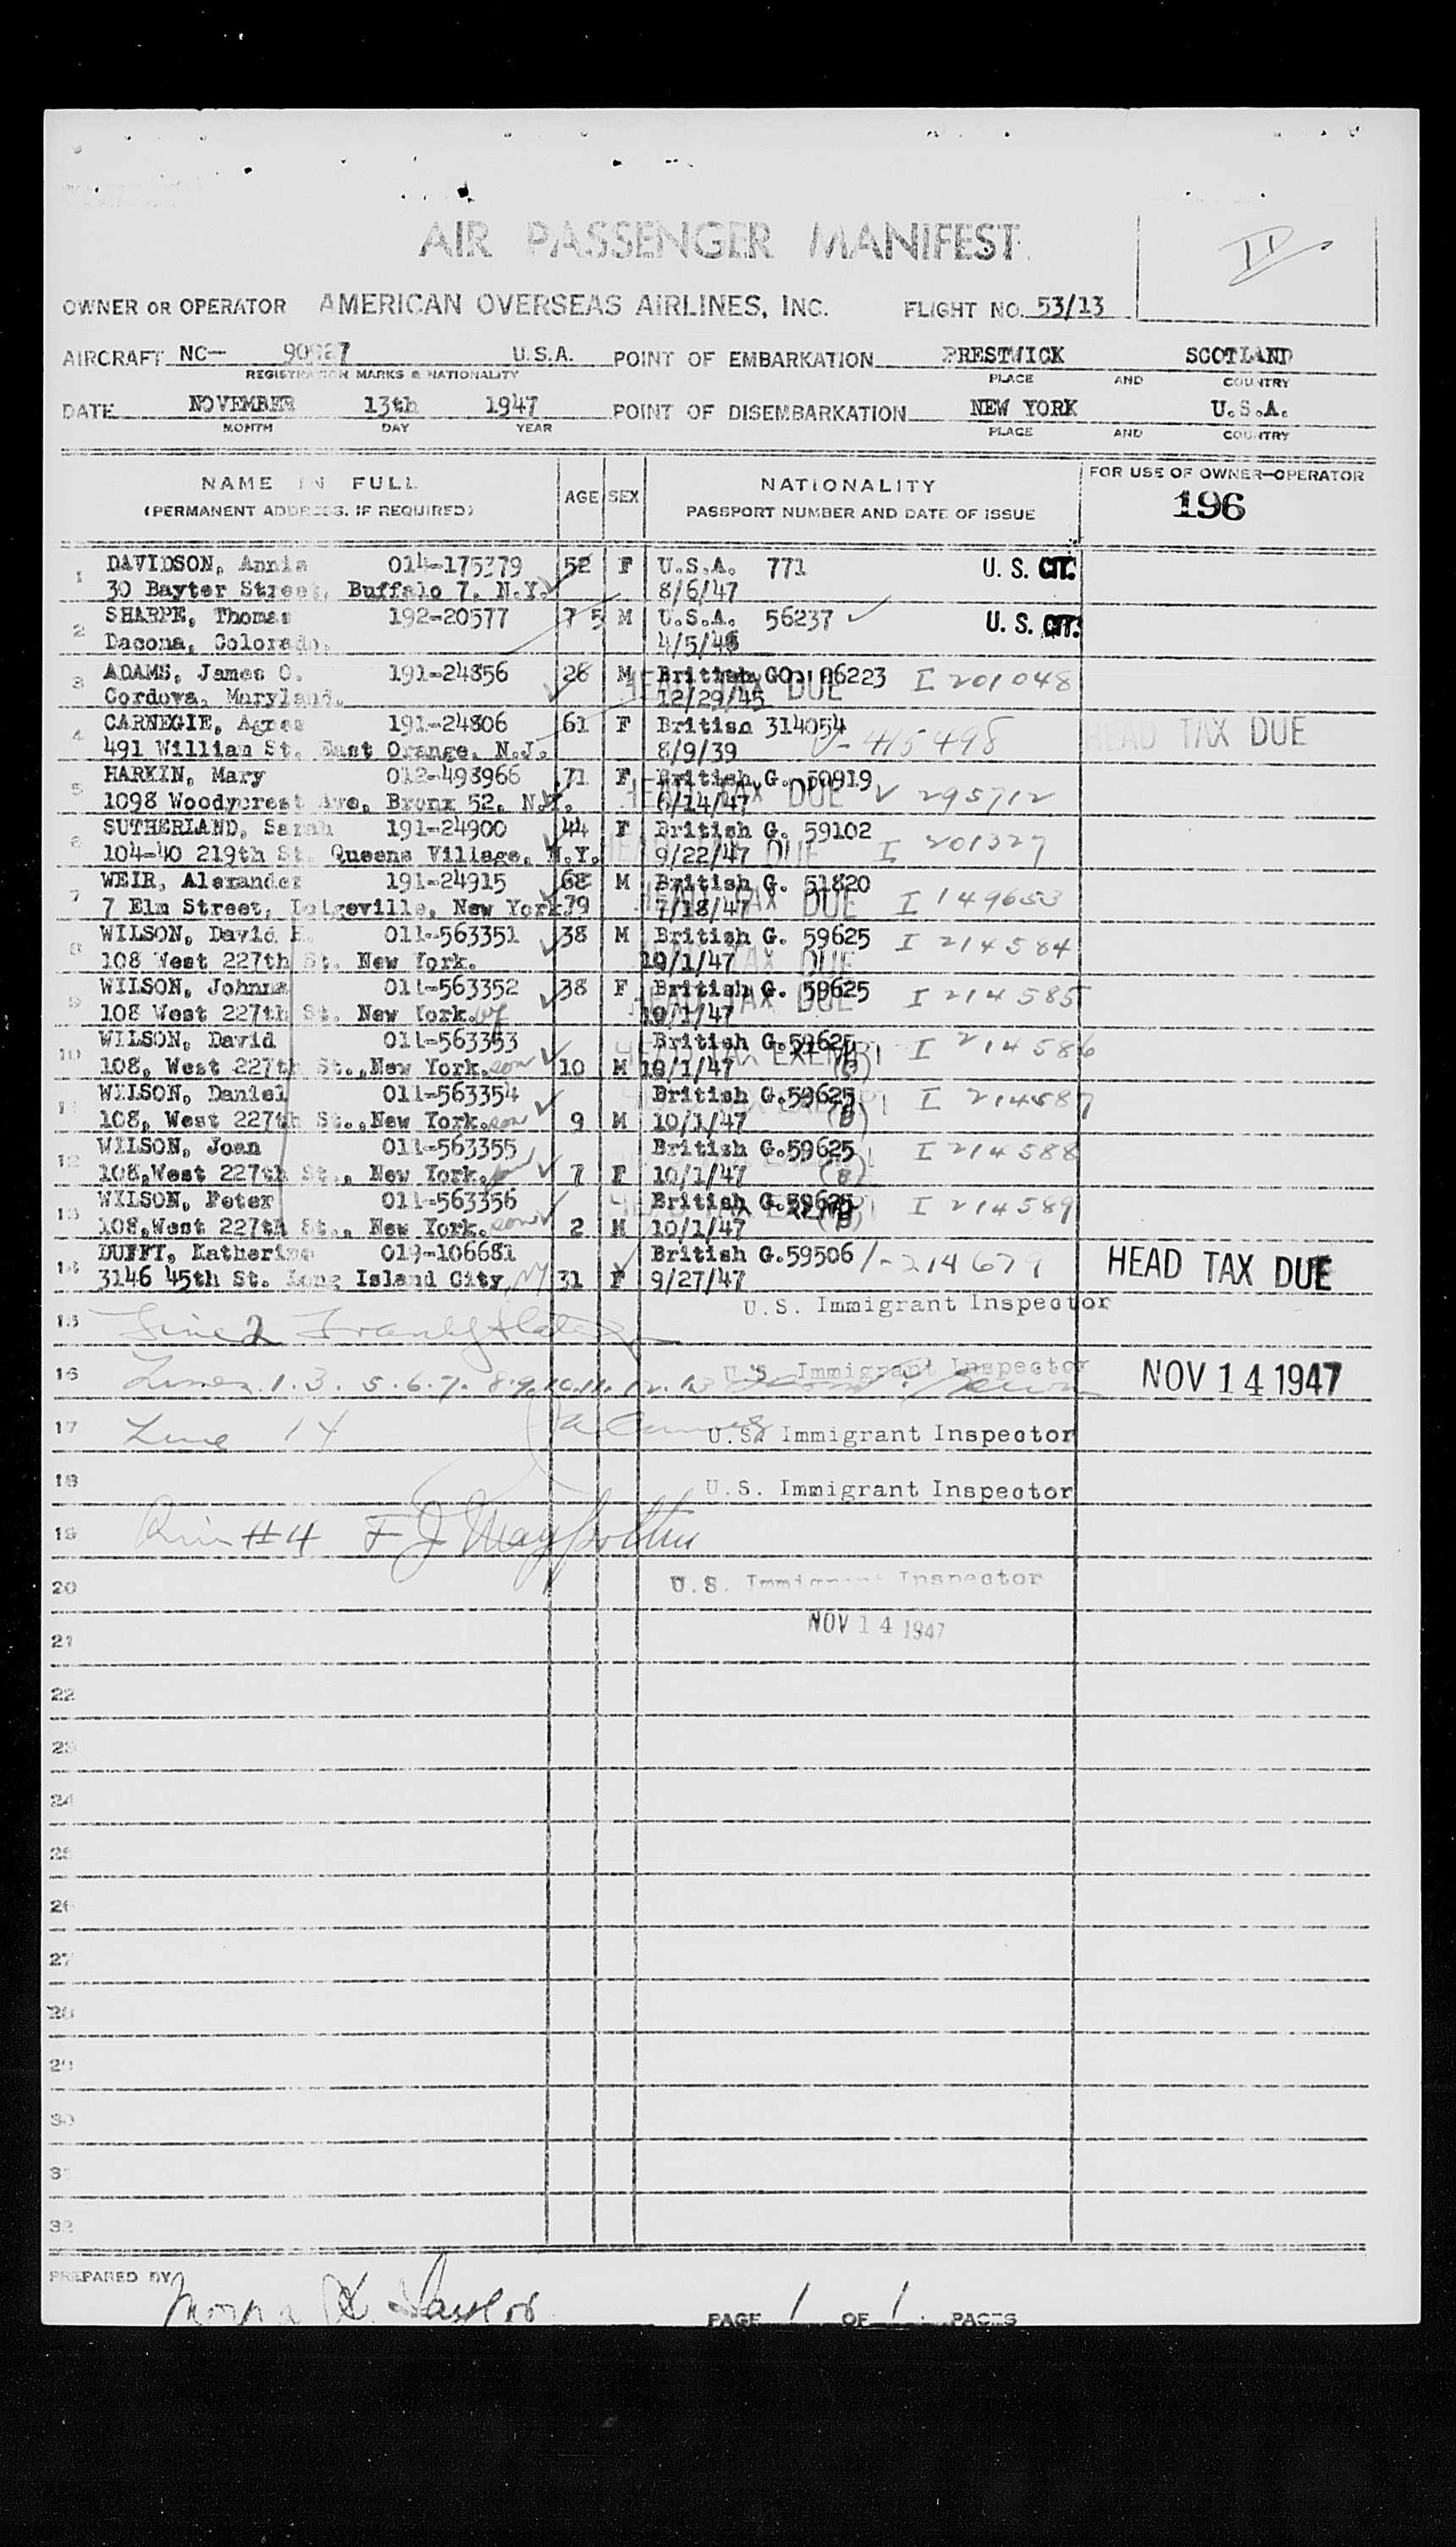 AIR PASSENGER MANIFEST
II
OWNER OR OPERATOR AMERICAN OVERSEAS AIRLINES, INC. FLIGHT NO. 53/13
AIRCRAFT NC— U.S.A. POINT OF EMBARKATION PRESTWICK SCOTLAND
REGISTRATION MARKS & NATIONALITY PLACE AND COUNTRY
DATE NOVEMBER 13th 1947 POINT OF DISEMBARKATION NEW YORK U.S.A.
MONTH DAY YEAR PLACE AND COUNTRY
NAME IN FULL AGE SEX NATIONALITY FOR USE OF OWNER—OPERATOR
(PERMANENT ADDRESS, IF REQUIRED) PASSPORT NUMBER AND DATE OF ISSUE 196
1 DAVIDSON, Annie 014-175379 52 F U.S.A. 771 U. S. CIT.
30 Bayter Street, Buffalo 7, N.Y. 8/6/47
2 SHARPE, Thomas 192-20577 75 M U.S.A. 56237 U. S. CIT.
Dacona, Colorado. 4/5/46
3 ADAMS, James O. 191-24856 26 M British I 201048
Cordova, Maryland. 12/29/45 HEAD TAX DUE
4 CARNEGIE, Agnes 191-24806 61 F British 314054 HEAD TAX DUE
491 William St. East Orange, N.J. 8/9/39 V-415498
5 HARKIN, Mary 012-493966 71 F British G. 50919
1098 Woodycrest Ave, Bronx 52, N.Y. 6/14/47 HEAD TAX DUE V 295712
6 SUTHERLAND, Sarah 191-24900 44 F British G. 59102
104-40 219th St. Queens Village, N.Y. 9/22/47 HEAD TAX DUE I 201327
7 WEIR, Alexander 191-24915 68 M British G. 51820
7 Elm Street, Dolgeville, New York 79 7/18/47 HEAD TAX DUE I 149653
8 WILSON, David H. 011-563351 38 M British G. 59625 I 214584
108 West 227th St. New York. 10/1/47 HEAD TAX DUE
9 WILSON, Johnna 011-563352 38 F British G. 59625 I 214585
108 West 227th St. New York. wf 10/1/47 HEAD TAX DUE
10 WILSON, David 011-563353 British G.59625 I 214586
108, West 227th St.,New York. son 10 M 10/1/47 HEAD TAX EXEMPT (B)
11 WILSON, Daniel 011-563354 British G.59625 I 214587
108, West 227th St.,New York. son 9 M 10/1/47 HEAD TAX EXEMPT (B)
12 WILSON, Joan 011-563355 British G.59625 I 214588
108,West 227th St., New York. 7 F 10/1/47 (B)
13 WILSON, Peter 011-563356 British G.59625 I 214589
108,West 227th St., New York. son 2 M 10/1/47 HEAD TAX EXEMPT (B)
14 DUFFY, Katherine 019-106681 British G.59506 I-214679 HEAD TAX DUE
3146 45th St. Long Island City, NY 31 F 9/27/47
U.S. Immigrant Inspector
15 Line 2
16 Lines 1. 3. 5. 6. 7. 8. 9. 10. 11. 12. 13 U.S. Immigrant Inspector NOV 14 1947
17 Line 14 U.S. Immigrant Inspector
18 U.S. Immigrant Inspector
19 #4 F J
20 U.S. Immigrant Inspector
21 NOV 14 1947
22
23
24
25
26
27
28
29
30
31
32
PREPARED BY Taylor
PAGE 1 OF 1 PAGES